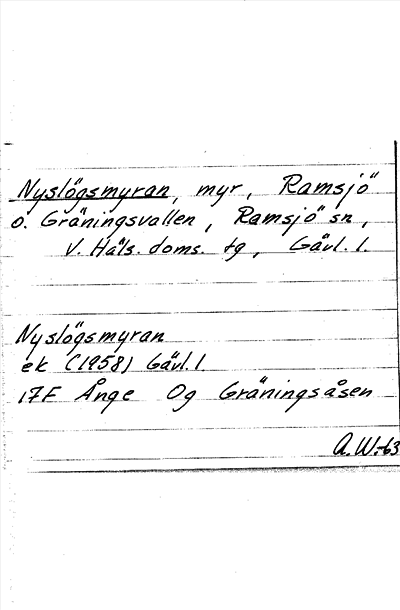 Nyslögsmyran, myr, Ramsjö
o. Gräningsvallen, Ramsjö sn,
V. Häls. doms. tg, Gävl. l.
Nyslögsmyran
ek (1958) Gävl. l
17F Ånge Og Gräningsåsen
A.W.-63